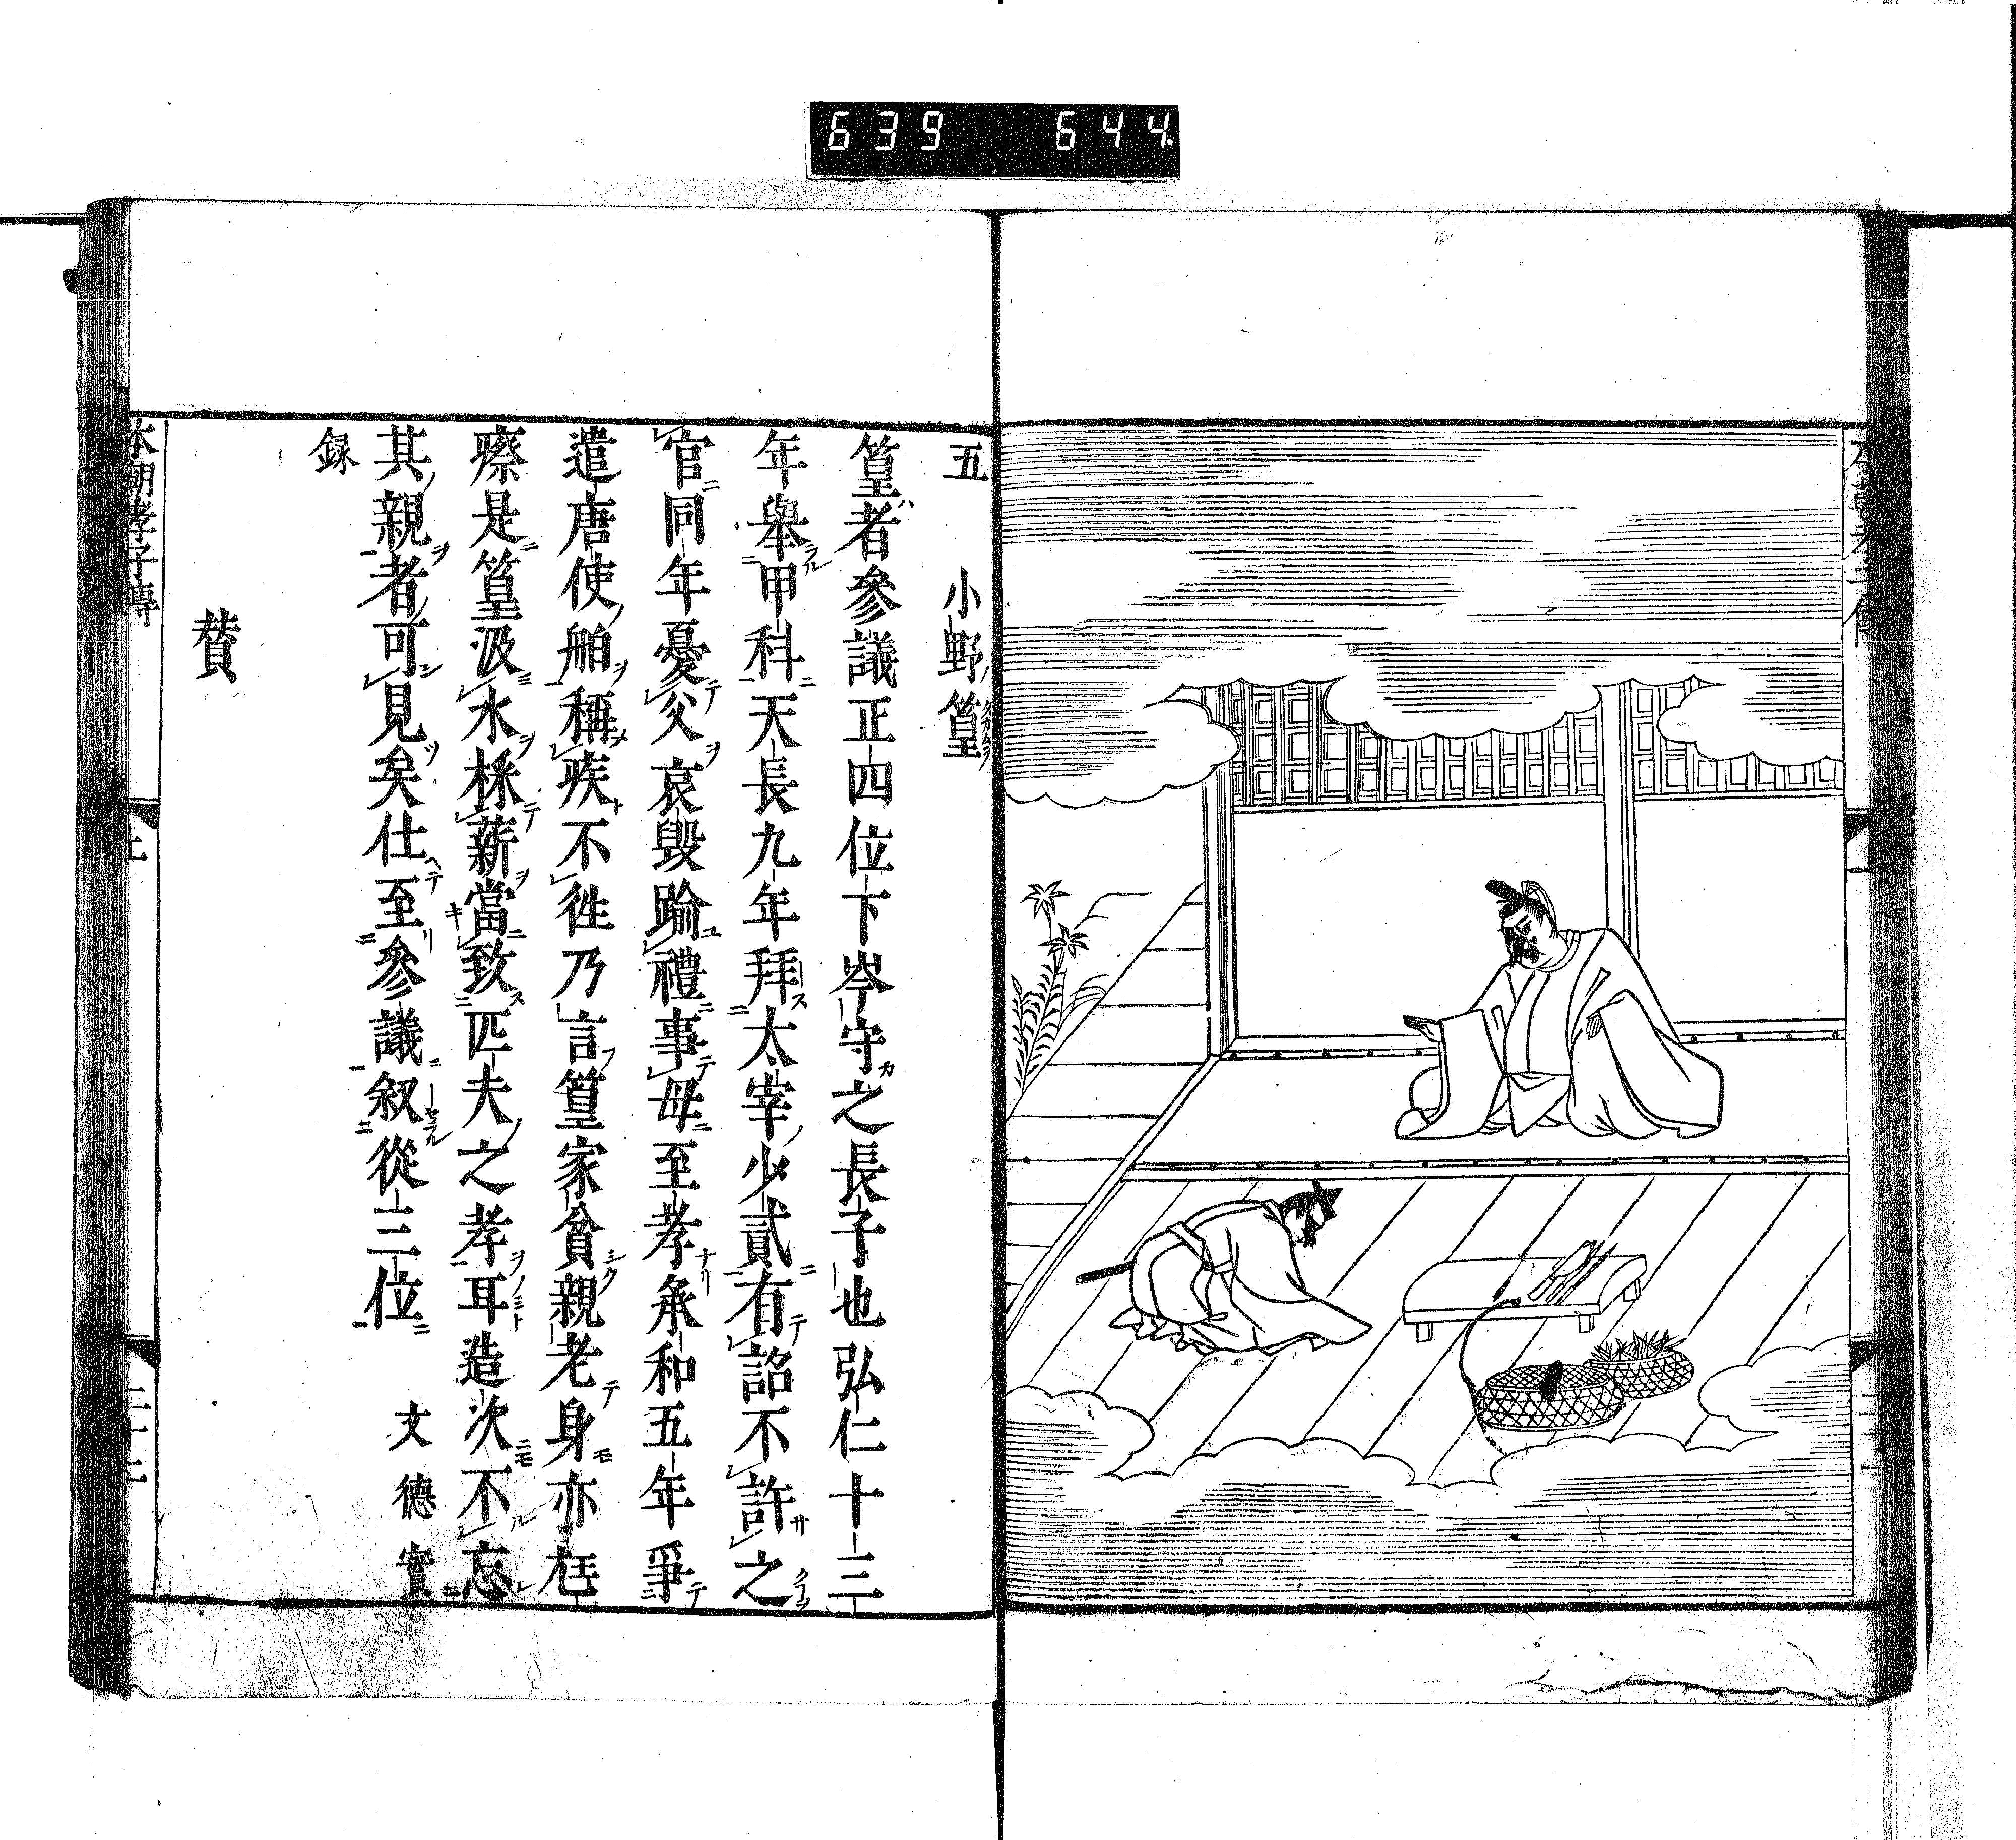 639 644
五 小野篁
篁者參議正四位下岑守之長子也弘仁十三
年舉甲科天長九年拜太宰少貳有詔不許之
官同年憂父哀毀踰禮事母至孝承和五年爭
遣唐使舶稱疾不徃乃言篁家貧親老身亦尩
瘵是篁汲水採薪當致匹夫之孝耳造次不忘
其親者可見矣仕至參議叙從三位 文德實
録
賛
本朝孝子傳 上